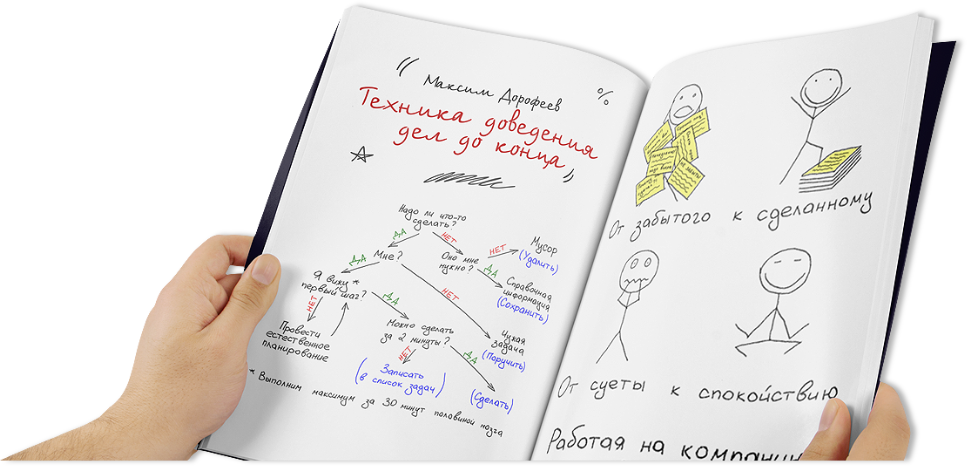 Максим Дорофеев
%
Техника доведения
дел до конца
Надо ли что-то
сделать?
ДА
НЕТ
Мне?
Оно мне
нужно?
НЕТ
Мусор
(Удалить)
ДА
Справочная
информация
(Сохранить)
ДА
НЕТ
Я вижу *
первый шаг?
НЕТ
ДА
Чужая
задача
(Поручить)
Провести
естественное
планирование
Можно сделать
за 2 минуты?
НЕТ
ДА
(Записать
в список задач)
(Сделать)
* Выполним максимум за 30 минут половиной мозга
От забытого к сделанному
От суеты к спокойствию
Работая на компанию